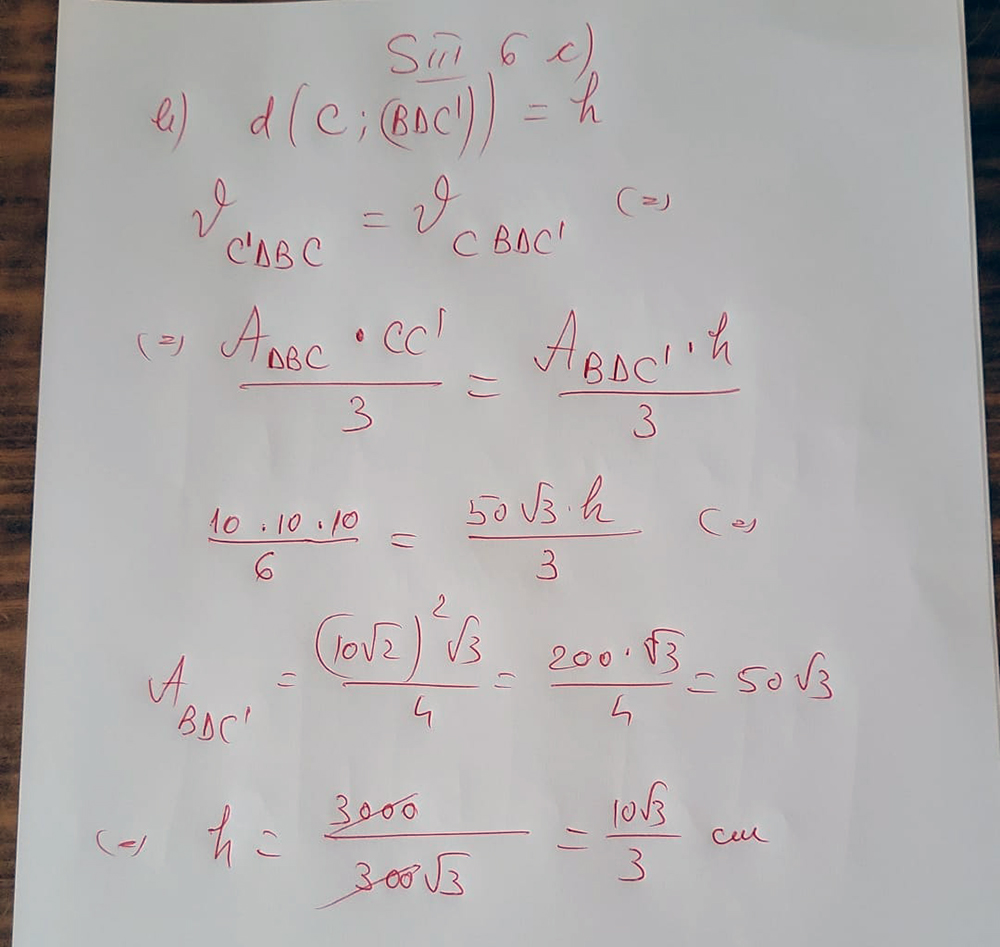 SIII 6 c)
b) d(C; (BDC')) = h
V_{C'DBC} = V_{CBDC'} (=)
(=) A_{DBC} · CC' / 3 = A_{BDC'} · h / 3
10 · 10 · 10 / 6 = 50√3 · h / 3 (=)
A_{BDC'} = (10√2)² √3 / 4 = 200 · √3 / 4 = 50√3
(=) h = 3000 / 300√3 = 10√3 / 3 cm